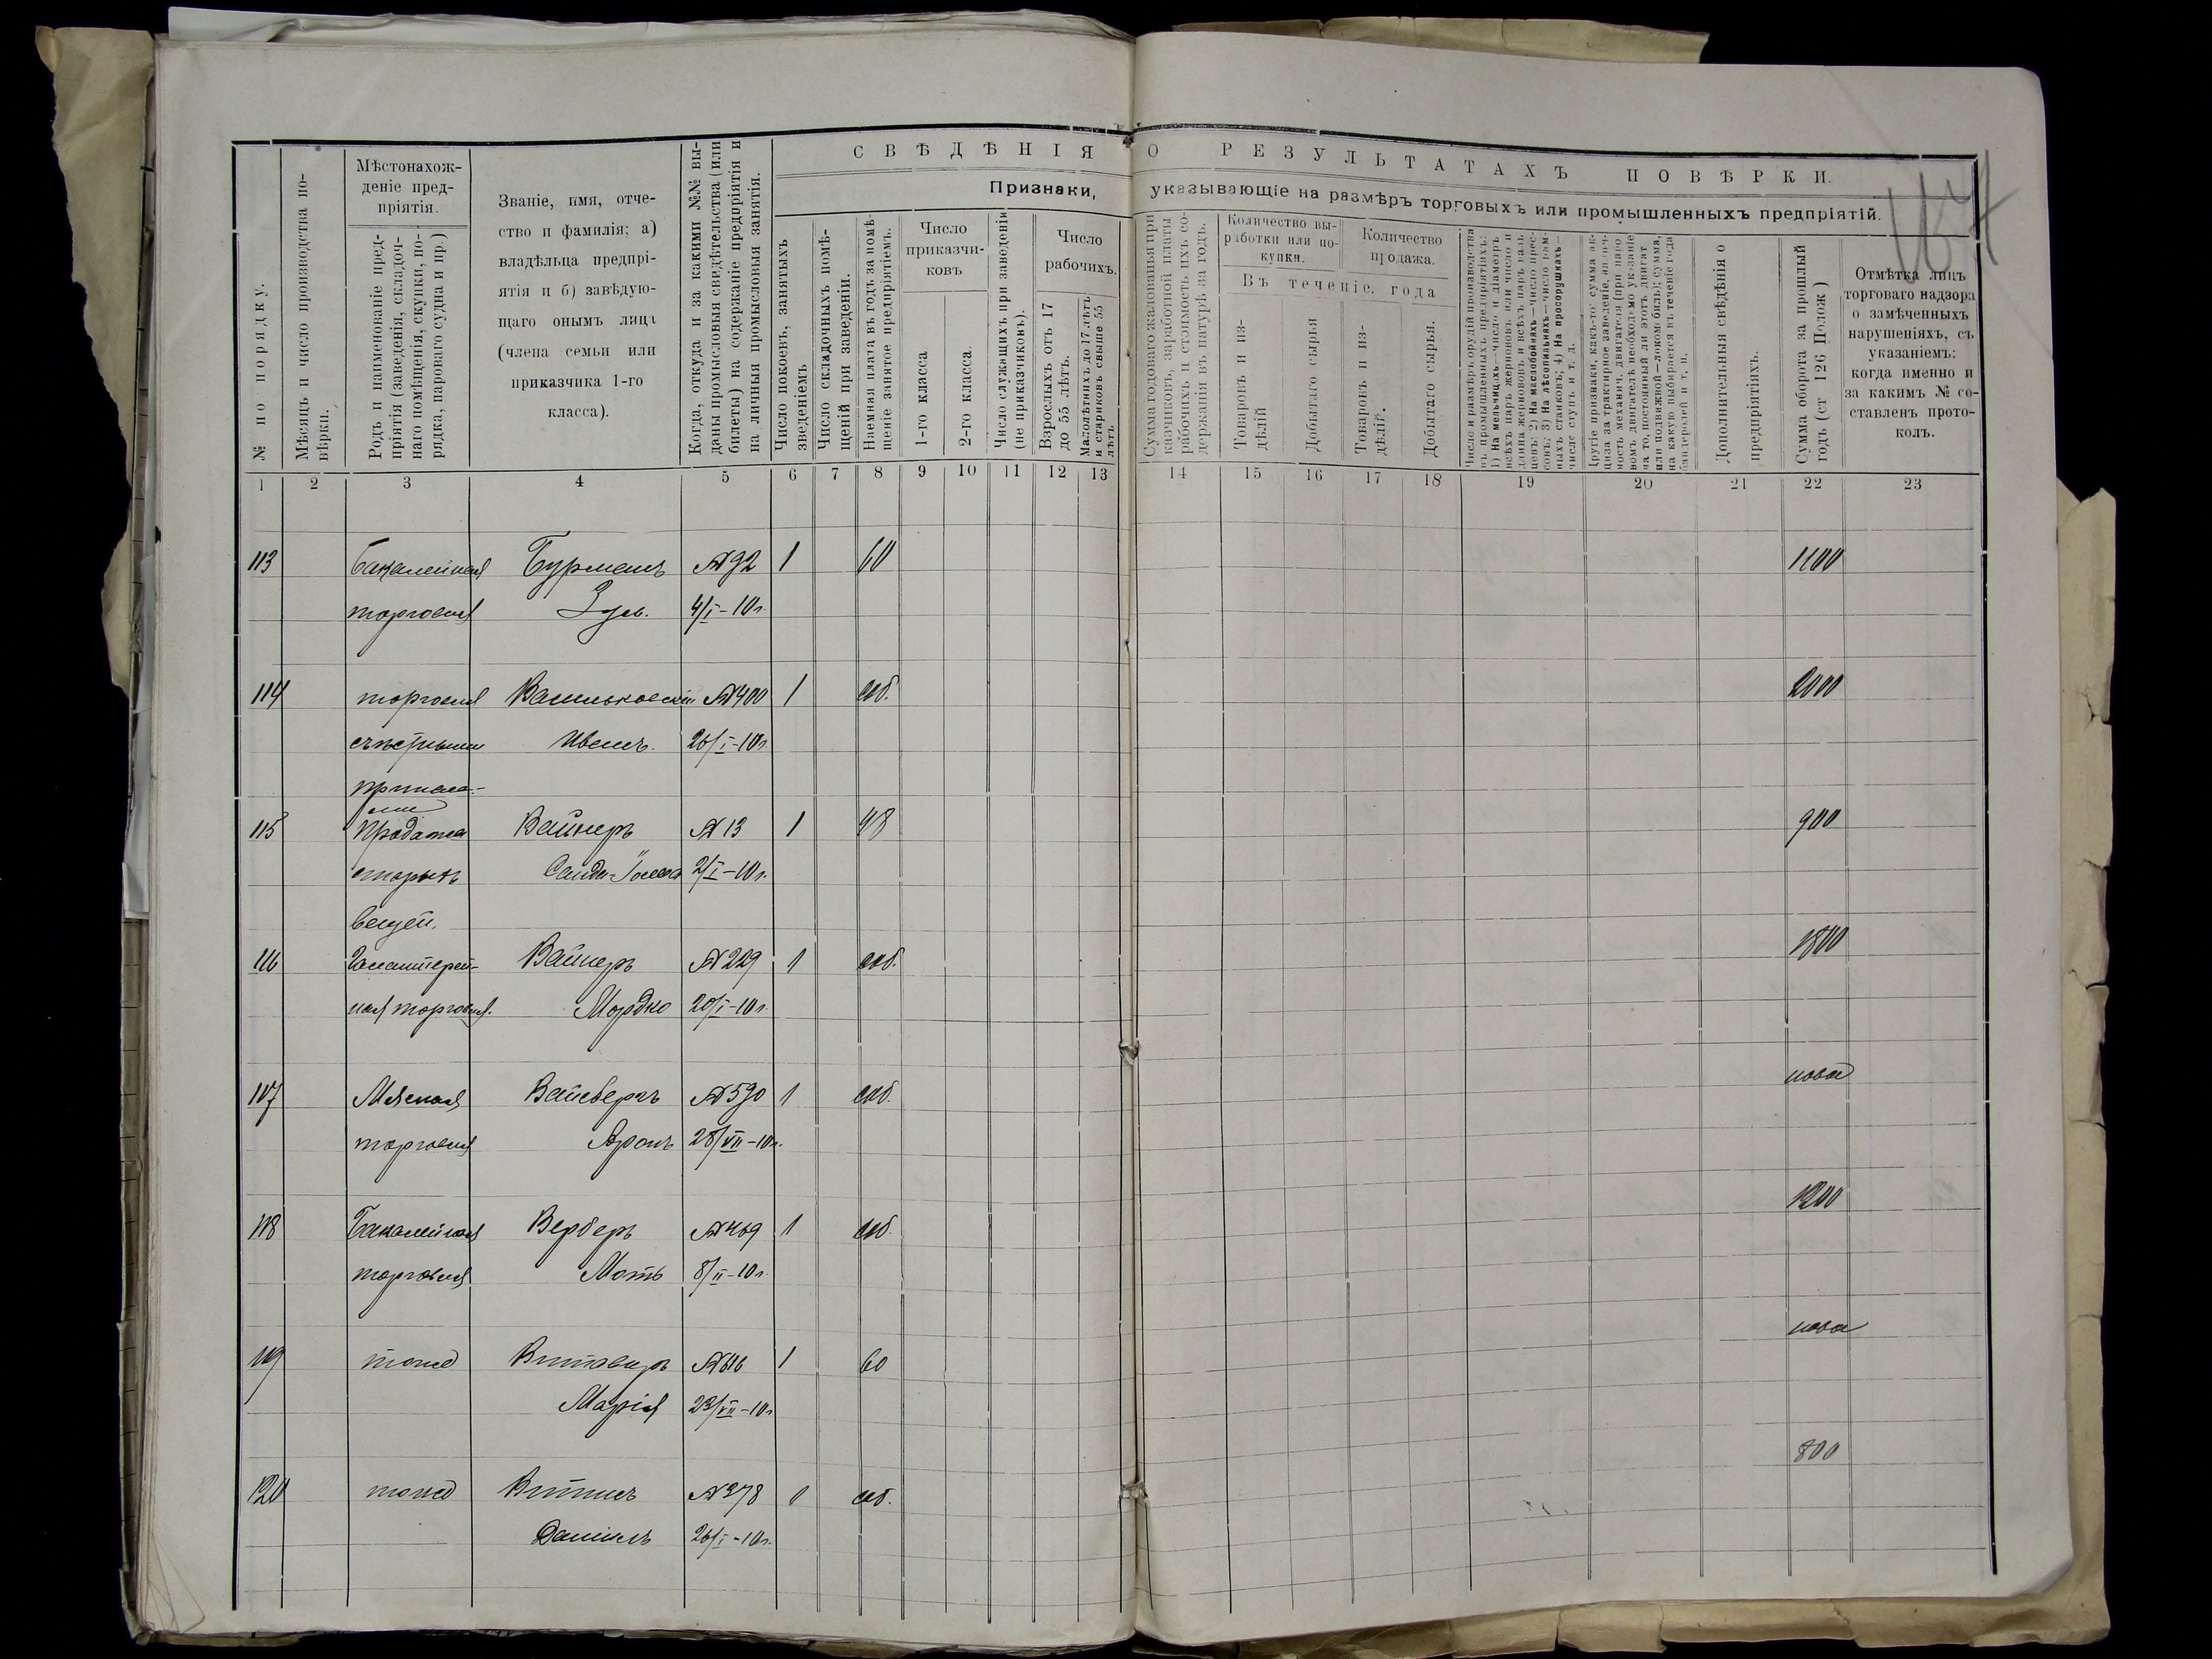 СВѢДѢНІЯ О РЕЗУЛЬТАТАХЪ ПОВѢРКИ.
Признаки, указывающіе на размѣръ торговыхъ или промышленныхъ предпріятій.
№ по порядку.
Мѣсяцъ и число производства по-
вѣрки.
Мѣстонахож-
деніе пред-
пріятія.
Родъ и наименованіе пред-
пріятія (заведенія, складоч-
наго помѣщенія, скупки, по-
рядка, пароваго судна и пр.)
Званіе, имя, отче-
ство и фамилія; а)
владѣльца предпрі-
ятія и б) завѣдую-
щаго онымъ лица
(члена семьи или
приказчика 1-го
класса).
Когда, откуда и за какими №№ вы-
даны промысловыя свидѣтельства (или
билеты) на содержаніе предпріятія и
на личныя промысловыя занятія.
Число покоевъ, занятыхъ
зведеніемъ
Число складочныхъ помѣ-
щеній при заведеніи.
Наемная плата въ годъ за помѣ-
щеніе занятое предпріятіемъ.
Число
приказчи-
ковъ
1-го класса
2-го класса.
Число служащихъ при заведеніи
(не приказчиковъ).
Число
рабочихъ.
Взрослыхъ отъ 17
до 55 лѣтъ.
Малолѣтнихъ до 17 лѣтъ
и стариковъ свыше 55
лѣтъ.
Сумма годоваго жалованья при
казчиковъ, заработной платы
рабочихъ и стоимость ихъ со-
держанія въ натурѣ за годъ.
Количество вы-
работки или по-
купки.
Количество
продажа.
Въ теченіе года
Товаровъ и из-
дѣлій
Добытаго сырья
Товаровъ и из-
дѣлій.
Добытаго сырья.
Число и размѣръ орудій производства
въ промышленныхъ предпріятіяхъ:
1) На мельницахъ—число и діаметръ
всѣхъ паръ жернововъ или число и
длина жернововъ и всѣхъ паръ валь
цевъ: 2) На маслобойняхъ—число прес-
совъ; 3) На лѣсопильняхъ—число рам-
ныхъ станковъ; 4) На просорушняхъ—
число ступъ и т. д.
Другіе признаки, какъ-то сумма ак-
циза за трактирное заведеніе, налич-
ность механич. двигателя (при паро
вомъ двигателѣ необходимо указаніе
на то, постоянный ли этотъ двигат
или подвижной—локомобиль); сумма,
на какую выбирается въ теченіе года
бандеролей и т. п.
Дополнительныя свѣдѣнія о
предпріятіяхъ.
Сумма оборота за прошлый
годъ (ст 126 Полож)
Отмѣтка лицъ
торговаго надзора
о замѣченныхъ
нарушеніяхъ, съ
указаніемъ:
когда именно и
за какимъ № со-
ставленъ прото-
колъ.
1 2 3 4 5 6 7 8 9 10 11 12 13 14 15 16 17 18 19 20 21 22 23
113 Бакалейная Бурманъ №92 1 60 1100
торговля 4/I-10г.
114 торговля Васильковскій №400 1 соб. 2000
съѣстными Иванъ. 26/I-10г.
припаса-
ми
115 Продажа Вайнеръ №13 1 48 900
старыхъ 2/I-10г.
вещей.
116 Галантерей- Вайнеръ №229 1 соб. 1800
ная торговля. Мордко 20/I-10г.
117 Мясная Вайсбергъ №590 1 соб. новая
торговля Аронъ 28/VII-10г.
118 Бакалейная Верберъ №469 1 соб. 1200
торговля Моть 8/II-10г.
119 тоже №616 1 60 новая
Марія 23/VII-10г
120 тоже №378 1 соб. 800
Данилъ 26/I-10г.